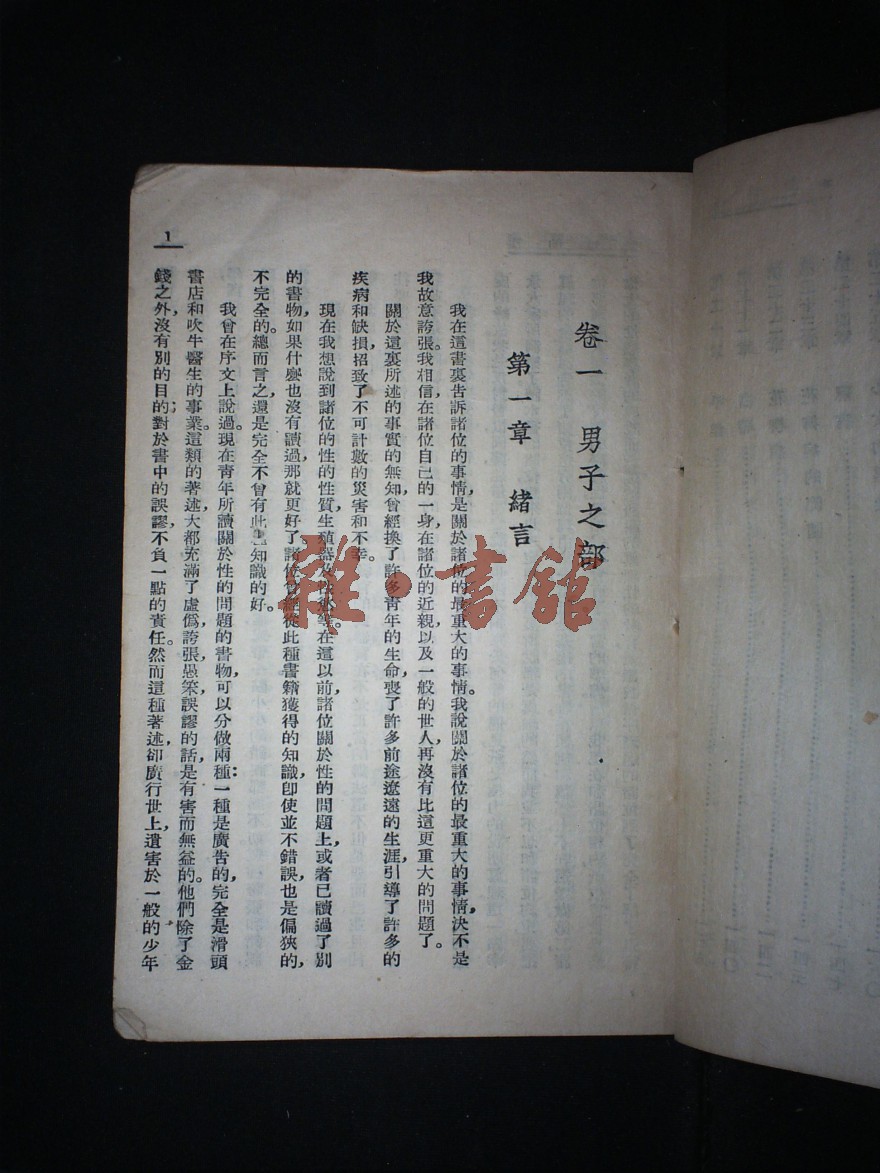 卷一 男子之部
第一章 緒言
我在這書裏告訴諸位的事情，是關於諸位的最重大的事情。我說關於諸位的最重大的事情，決不是
我故意誇張。我相信在諸位自己的一身，在諸位的近親，以及一般的世人，再沒有比這更重大的問題了。
關於這裏所述的事實的無知，曾經換了許多青年的生命，喪了許多前途遼遠的生涯，引導了許多的
疾病和缺損，招致了不可計數的災害和不幸。
現在我想說到諸位的性的性質，生殖器及 等。在這以前，諸位關於性的問題上，或者已讀過了別
的書物，如果什麼也沒有讀過，那就更好了。諸位曾經從此種書籍獲得的知識，卽使並不錯誤，也是偏狹的，
不完全的。總而言之，還是完全不曾有此 知識的好。
我曾在序文上說過。現在青年所讀關於性的問題的書物，可以分做兩種：一種是廣告的，完全是滑頭
書店和吹牛醫生的事業。這類的著述，大都充滿了虛僞，誇張，愚笨，誤謬的話，是有害而無益的。他們除了金
錢之外，沒有別的目的；對於書中的誤謬，不負一點的責任。然而這種著述，卻廣行世上，遺害於一般的少年
1
雜·書館